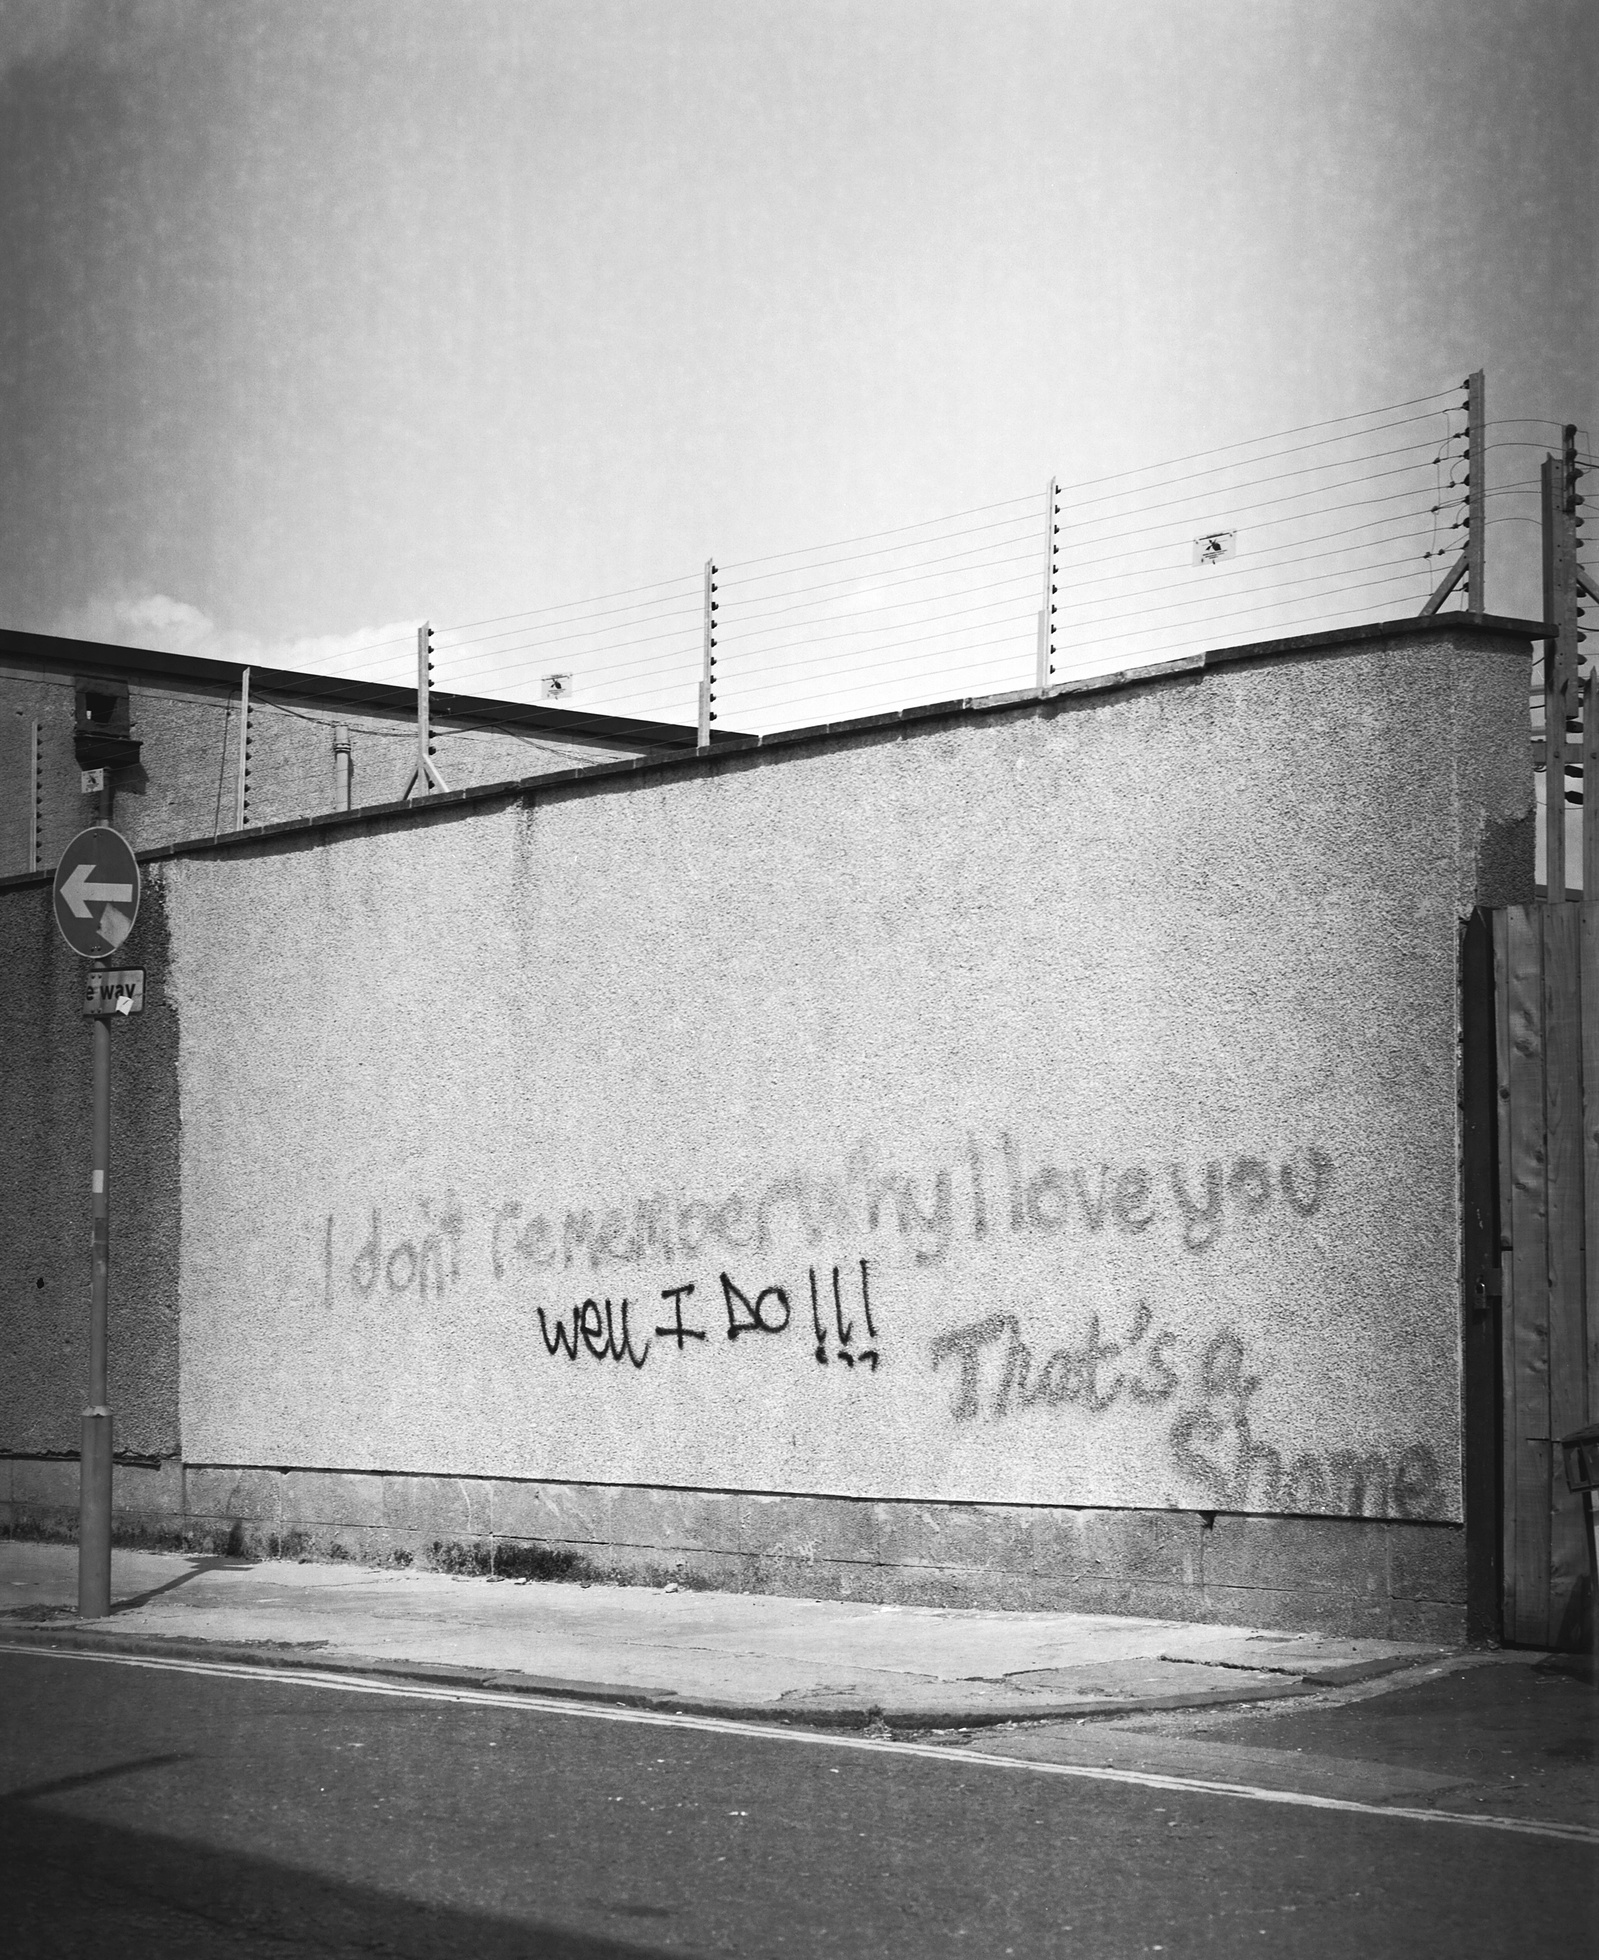 e way
I don't remember why I love you
well I DO!!!
That's a
Shame